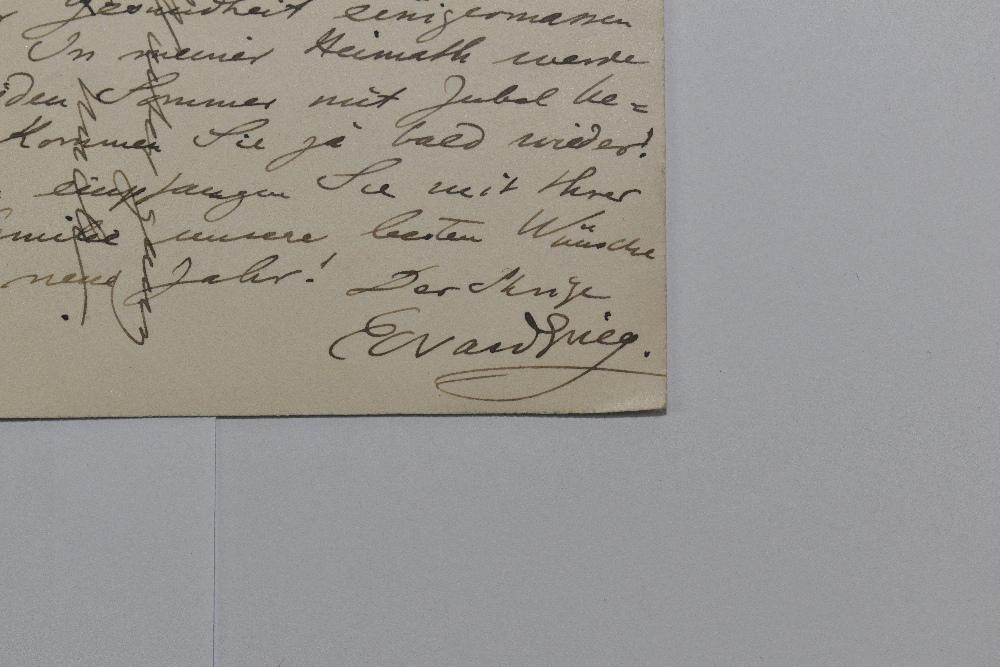 Gesundheit einigermassen
In meiner Heimath werde
iden Sommer mit Jubel be=
Kommen Sie ja bald wieder!
empfangen Sie mit Ihrer
amilie unsere besten Wünsche
neue Jahr! Der Ihrige
Edvard Grieg.